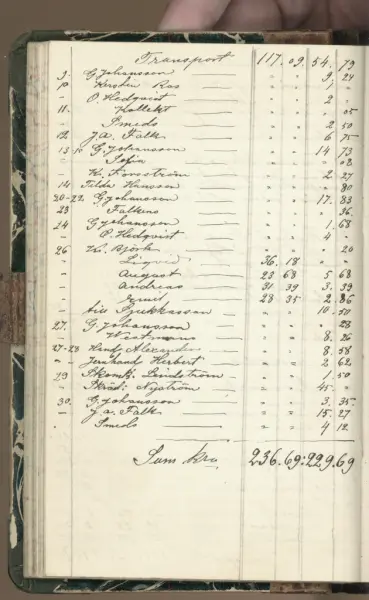 Transport 117. 09. 54. 79
9. G Johansson 9. 24
10 Kersten Ros 1, "
" P. Hedqvist 2 "
11. Kollekt " 05
" Smeds 2 50
12. J. A. Falk 6 75
13 G Johansson 14 73
" Sofia " 08
" K. 2 27
14 Tilda Hansson 80
20-22. G Johansson 17. 83
23 Falkens 36.
24 G Johansson 1. 68
P. Hedqvist 4 "
26 K. Björk " 20
36. 18 " "
" August 23 68 5 68
" Andreas 31 39 3. 39
" Emil 28 35 2 86
" till 10. 50
27. G. Johansson " 28
Westmans 8. 26
27-28 Alexander 8. 58
" Herbert 2 62
29 Lindström 1 50
" Nyström 45. "
30. G Johansson 3. 35
" J. A. Falk 15. 27
Smeds 4 12
Sum Kro 236. 69: 229. 69